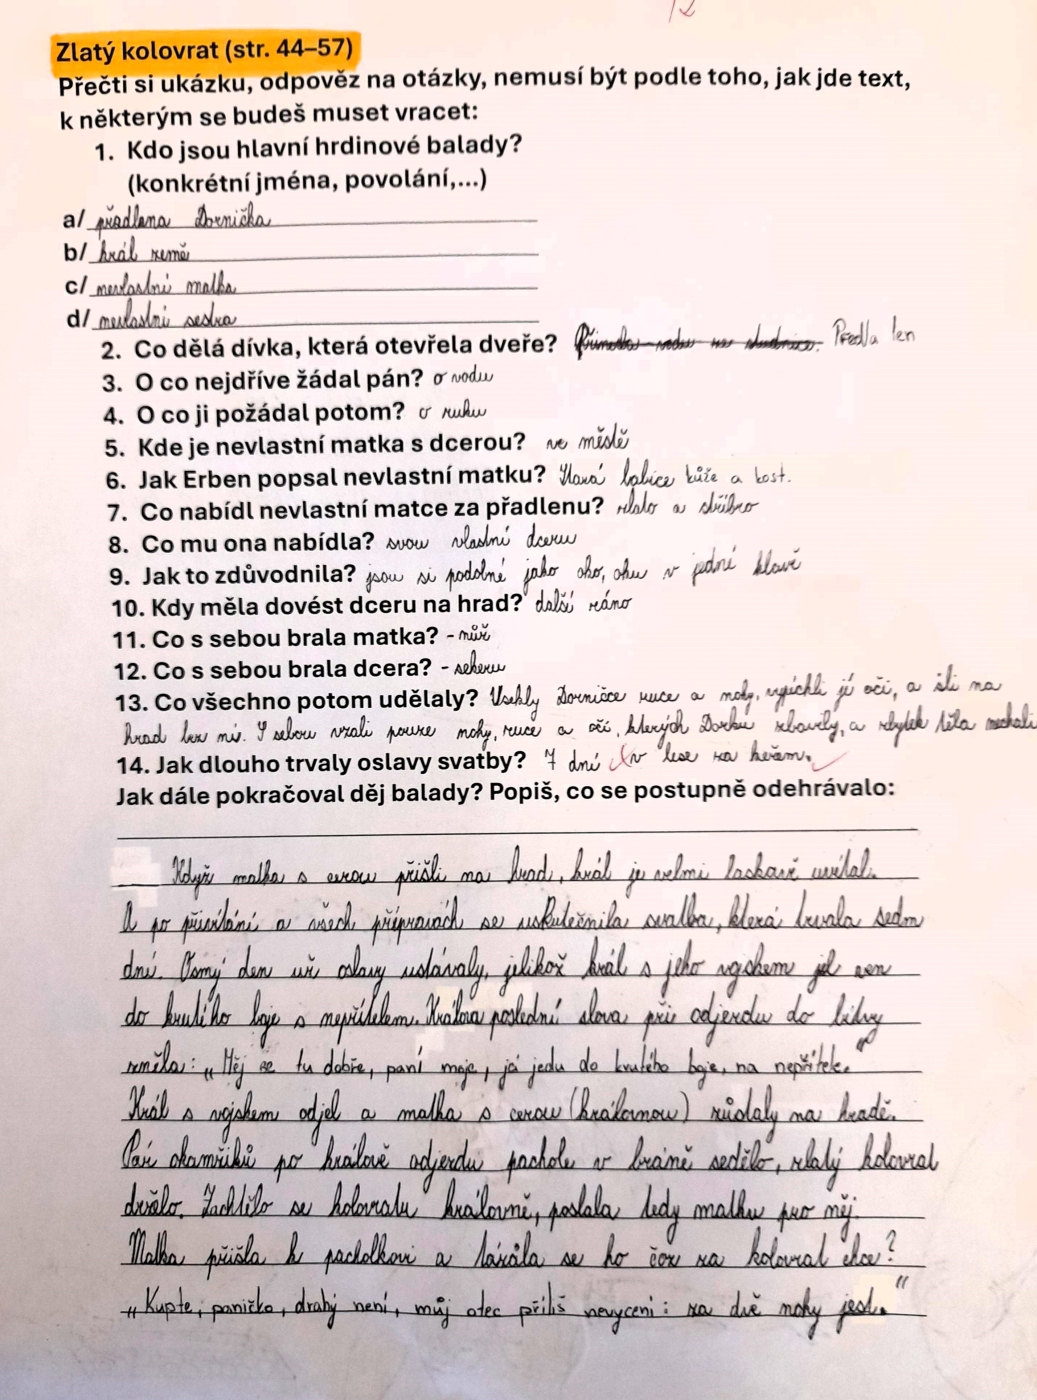 12
Zlatý kolovrat (str. 44–57)
Přečti si ukázku, odpověz na otázky, nemusí být podle toho, jak jde text,
k některým se budeš muset vracet:
1. Kdo jsou hlavní hrdinové balady?
(konkrétní jména, povolání,...)
a/ přadlena Dornička
b/ král země
c/ nevlastní matka
d/ nevlastní sestra
2. Co dělá dívka, která otevřela dveře? Přinesla vodu ze studnice. Předla len
3. O co nejdříve žádal pán? o vodu
4. O co ji požádal potom? o ruku
5. Kde je nevlastní matka s dcerou? ve městě
6. Jak Erben popsal nevlastní matku? Stará babice kůže a kost.
7. Co nabídl nevlastní matce za přadlenu? zlato a stříbro
8. Co mu ona nabídla? svou vlastní dceru
9. Jak to zdůvodnila? jsou si podobné jako oko, oku v jedné hlavě
10. Kdy měla dovést dceru na hrad? další ráno
11. Co s sebou brala matka? - nůž
12. Co s sebou brala dcera? - sekeru
13. Co všechno potom udělaly? Usekly Dorničce ruce a nohy, vypíchli jí oči, a šli na
hrad bez ní. S sebou vzali pouze nohy, ruce a oči, kterých Dorku zbavily, a zbytek těla nechali
14. Jak dlouho trvaly oslavy svatby? 7 dní v lese za keřem.
Jak dále pokračoval děj balady? Popiš, co se postupně odehrávalo:
Když matka s cerou přišli na hrad, král je velmi laskavě uvítal.
A po přivítání a všech přípravách se uskutečnila svatba, která trvala sedm
dní. Osmý den už oslavy ustávaly, jelikož král s jeho vojskem jel ven
do krutého boje s nepřítelem. Králova poslední slova při odjezdu do bitvy
zněla: „Měj se tu dobře, paní moje, já jedu do krutého boje, na nepřítele.“
Král s vojskem odjel a matka s cerou (královnou) zůstaly na hradě.
Pár okamžiků po králově odjezdu pachole v bráně sedělo, zlatý kolovrat
drželo. Zachtělo se kolovratu královně, poslala tedy matku pro něj.
Matka přišla k pacholkovi a tázala se ho čož za kolovrat chce?
„Kupte, paničko, drahý není, můj otec příliš nevycení: za dvě nohy jest.“